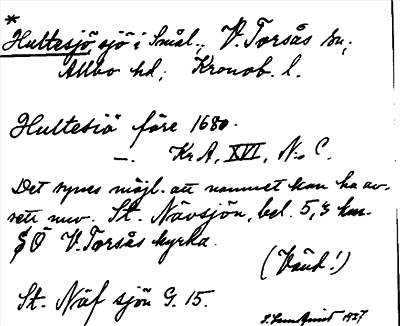 *
Hultesjö sjö i Smål., V. Torsås sn;
Allbo hd; Kronob. l.
Hultesiö före 1680.
—. Kr A, XVI, N:o C.
Det synes möjl. att namnet kan ha av-
sett nuv. St. Nävsjön, bel. 5,3 km.
SÖ V. Torsås kyrka.
(Vänd!)
St. Näf sjön G. 15.
S. Lundquist 1927